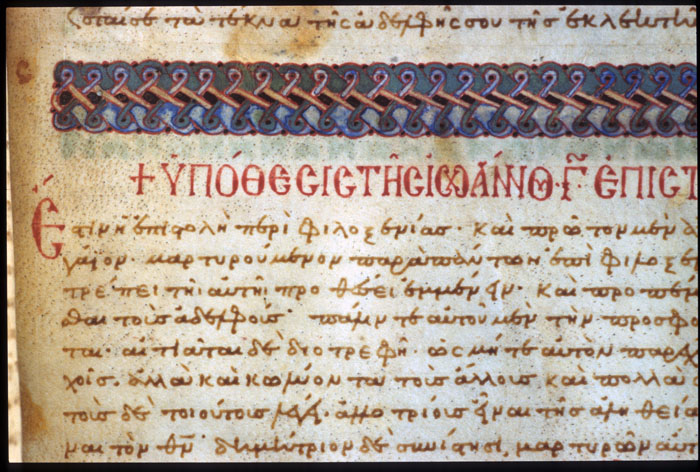 ζεταί σε τὰ τέκνα τῆς ἀδελφῆς σου τῆς
+ ΥΠΟΘΕCΙC ΤΗC ΙΩΑΝΝΟΥ Γ ΕΠΙCΤ
Ἔστιν ἡ ἐπιστολὴ περὶ φιλοξενίας· καὶ πρῶτον μὲν
γάϊον· μαρτυρούμενον παρὰ πάντων ἐπὶ φιλοξε
τρέπει τῆι αὐτῆι προθέσει ἐμμένειν· καὶ προπέμ
θαι τοὺς ἀδελφούς· πάλιν τε αὐτὸν μὲν τὴν προσφ
ται· αἰτιᾶται δὲ διοτρεφῆ· ὡς μήτε αὐτὸν παρ
χοῖς· ἀλλὰ καὶ κωλύοντα τοὺς ἄλλους καὶ πολλὰ
τοὺς δὲ τοιούτους ἀλλοτρίους εἶναι τῆς ἀληθεί
τὸν θν· δημήτριον δὲ συνίστησι μαρτυρῶν